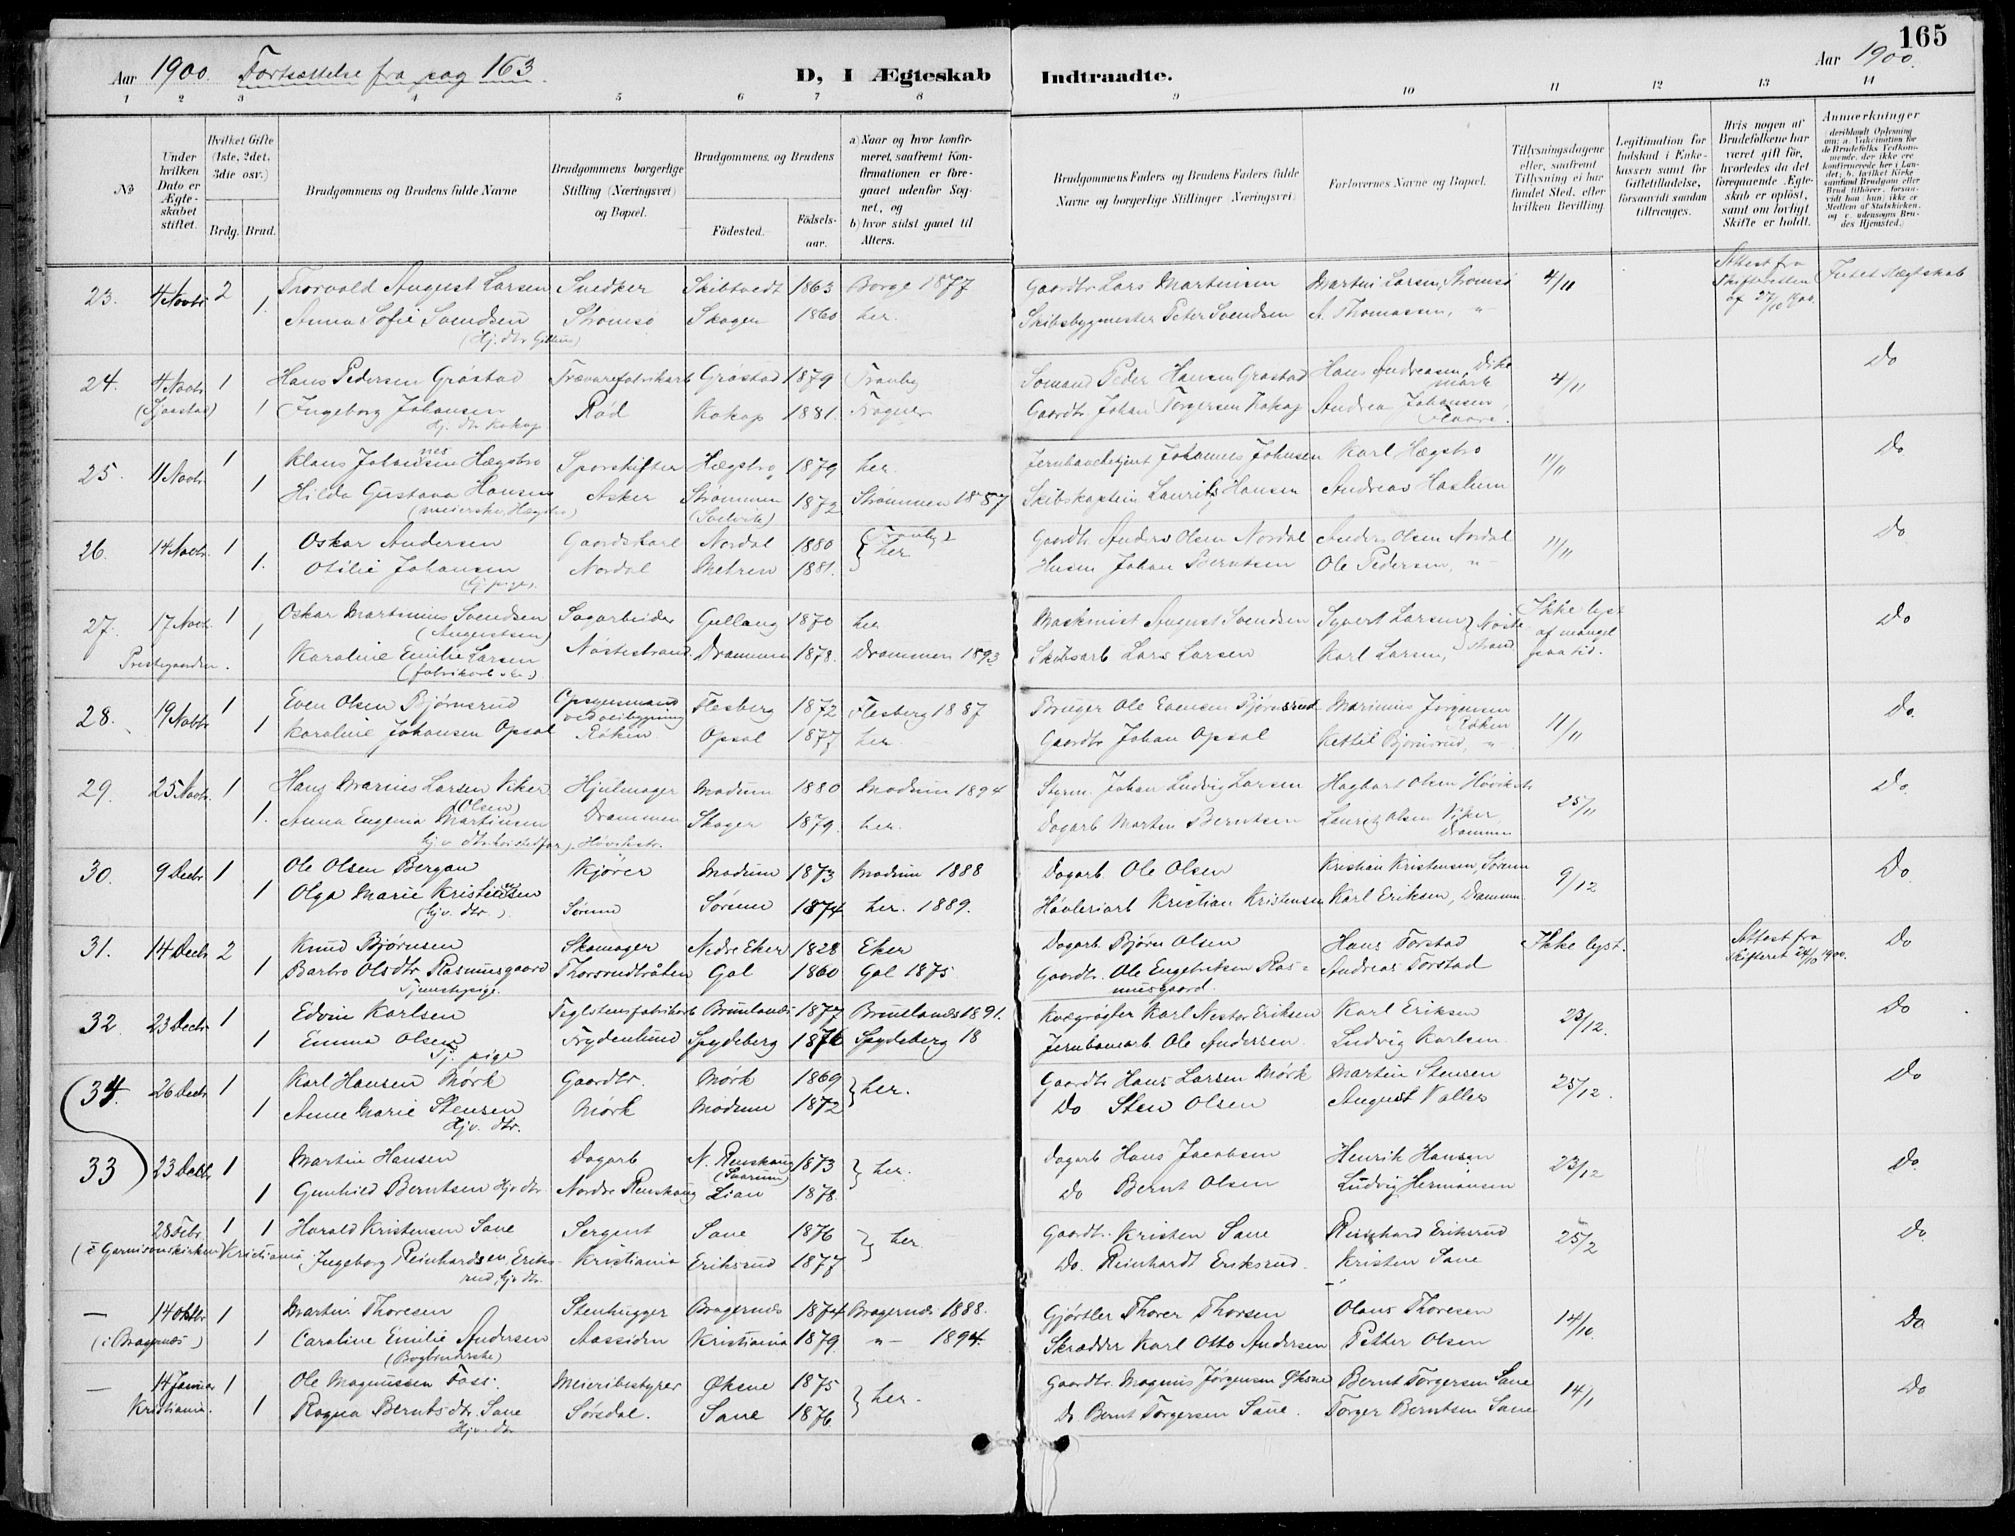 165
Aar 1900. Fortsættelse fra pag 163.
D, I Ægteskab Indtraadte.
Aar 1900.
1 2 3 4 5 6 7 8 9 10 11 12 13 14
No
Under hvilken Dato er Ægteskabet stiftet.
Hvilket Gifte (1ste, 2det, 3die osv.)
Brdg. Brud.
Brudgommens og Brudens fulde Navne
Brudgommens borgerlige Stilling (Næringsvei) og Bopæl.
Brudgommens og Brudens
Födested.
Födselsaar.
a) Naar og hvor konfirmeret, saafremt Konfirmationen er foregaaet udenfor Sognet, og
b) hvor sidst gaaet til Alters.
Brudgommens Faders og Brudens Faders fulde Navne og borgerlige Stillinger (Næringsvei)
Forlovernes Navne og Bopæl.
Tillysningsdagene eller, saafremt Tillysning ei har fundet Sted, efter hvilken Bevilling.
Legitimation for Indskud i Enkekassen samt for Giftetilladelse, forsaavidt saadan tiltrænges.
Hvis nogen af Brudefolkene har været gift för, hvorledes da det foregaaende Ægteskab er oplöst, samt om lovligt Skifte er holdt.
Anmerkninger
23. 4 Novbr 2 Thorvald August Larsen Snedker Skibtvedt 1863 Borge 1877 Gaardbr Lars Martinsen Martin Larsen, Strømsø 4/11 Attest fra Skifteretten af 27/10 1900. Intet slægtskab
1. Anna Sofie Svendsen Strømsø Skoger 1860 her. Skibsbygmester Peter Svendsen A. Thomassen, "
24. 4 Novbr 1 Hans Pedersen Gråstad Trævarefabrikarb Gråstad 1879 Tranby Sømand Peder Hansen Gråstad Hans Andreasen, Dikemark 4/11 Do
(Sjaastad) 1 Ingeborg Johansen Rød Kokop 1881. Frogner Gaardbr Johan Torgersen Kokop Andreas Johansen,
Hj. dtr Kokop
25. 11 Novbr 1 Klaus Johannesen Hægsbro Sporskifter Hægsbro 1879 her. Jernbanebetjent Johannes Johnsen Karl Hægsbro 11/11 Do
1 Hilda Gustava Hansen Asker Strømmen 1872 Strømmen 1887 Skibskaptein Laurits Hansen Andreas Haslum
(meierske, Hægsbro) (Svelvik)
26. 14 Novbr. 1 Oskar Andersen Gaardskarl Nordal 1880 (Tranby) Gaardbr Anders Olsen Nordal Anders Olsen Nordal 11/11 Do
1. Otilie Johansen Nordal Mehren 1881. her Husm Johan Berntsen Ole Pedersen, "
27. 17 Novbr. 1 Oskar Martinius Svendsen Sagarbeider Gullaug 1870 her Maskinist August Svendsen Syvert Larsen Nøstestrand Ikke lyst af mangel paa tid. Do
(Augustsen)
Prestegaarden. 1 Karoline Emilie Larsen Nøstestrand Drammen 1878. Drammen 1893 Skibsarb Lars Larsen Karl Larsen,
28. 19 Novbr 1 Even Olsen Bjørnsrud Opsynsmand ved veibygning Flesberg 1872 Flesberg 1887 Bruger Ole Evensen Bjørnsrud Marinius Jørgensen Røken 11/11 Do.
1 Karoline Johansen Opsal Røken Opsal 1877 her. Gaardbr Johan Opsal Kettil Bjørnsrud, "
29. 25 Novbr. 1 Hans Marius Larsen Viker Hjulmager Modum 1880 Modum 1894 Styrm. Johan Ludvig Larsen Hagbart Olsen Høvikstr 25/11 Do.
(Olsen)
1. Anna Eugenia Martinsen Drammen Skoger 1879. her. Dagarb Morten Berntsen Lauritz Olsen Viker, Drammen
30. 9 Decbr 1 Ole Olsen Bergan Kjører Modum 1873 Modum 1888 Dagarb. Ole Olsen Kristian Kristensen, Sørum 9/12 Do
1 Olga Marie Kristensen Sørum Sørum 1874 her. 1889. Høvleriarb Kristian Kristensen Karl Eriksen, Drammen
(hjv. dtr.)
31. 14 Decbr 2 Knud Bjørnsen Skomager Nedre Eker 1828 Eker Dagarb Bjørn Olsen Hans Torstad Ikke lyst. Attest fra Skifteret 24/10 1900. Do
1 Barbro Olsdtr Rasmusgaard Thorsrudbråten Gol 1860 Gol 1875 Gaardbr. Ole Engebriksen Rasmusgaard. Andreas Torstad
Tjenestepige.
32. 23 Decbr 1 Edvin Karlsen Teglstensfabrikarb Brunlanæs 1877 Brunlanæs 1891. Kvægrøgter Karl Nestor Eriksen Karl Eriksen 23/12. Do
1 Emma Olsen Frydenlund Spydeberg 1876 Spydeberg 18 Jernbanearb. Ole Andersen. Ludvig Karlsen
Tj. pige
34. 26 Decbr 1 Karl Hansen Mørk Gaardbr. Mørk 1869 her. Gaardbr Hans Larsen Mørk Martin Stensen 25/12. Do
1 Anne Marie Stensen Mørk Modum 1872 Do Sten Olsen August Valler
Hjv. dtr.
33 23 Decbr 1 Martin Hansen Dagarb N. Renskaug 1873 her. Dagarb Hans Jacobsen Henrik Hansen 23/12 Do.
1 Gunhild Berntsen Hjv dtr Nordre Renskaug Lian 1878. Do Bernt Olsen Ludvig Hermansen
28 Febr. 1 1 Harald Kristensen Sane Sergent Sane 1876 her Gaardbr. Kristen Sane Reinhard Eriksrud 25/2 Do.
(i Garnisonskirken Kristiania) Ingeborg Reinhardsen Eriksrud, hjv dtr. Kristiania Eriksrud 1877 Do. Reinhardt Eriksrud. Kristen Sane
— 14 Oktbr 1 Martin Thoresen Stenhugger Bragernæs 1874 Bragernæs 1888. Gjørtler Thorer Thorsen Olaus Thoresen 14/10. Do
(i Bragernæs) 1 Caroline Emilie Andersen Aassiden Kristiania 1879 " 1894. Skrædder Karl Otto Andersen Petter Olsen
(Bogbinderske)
— 14 Januar 1 Ole Magnussen Foss. Meieribestyrer Øksne 1875 her. Gaardbr. Magnus Jørgensen Øksne Bernt Torgersen Sane 14/1 Do
Kristiania. 1 Ragna Berntsdtr. Sane Sørsdal. Sane 1876 Do Bernt Torgersen Sane. Torger Berntsen Sane
Hjv. dtr